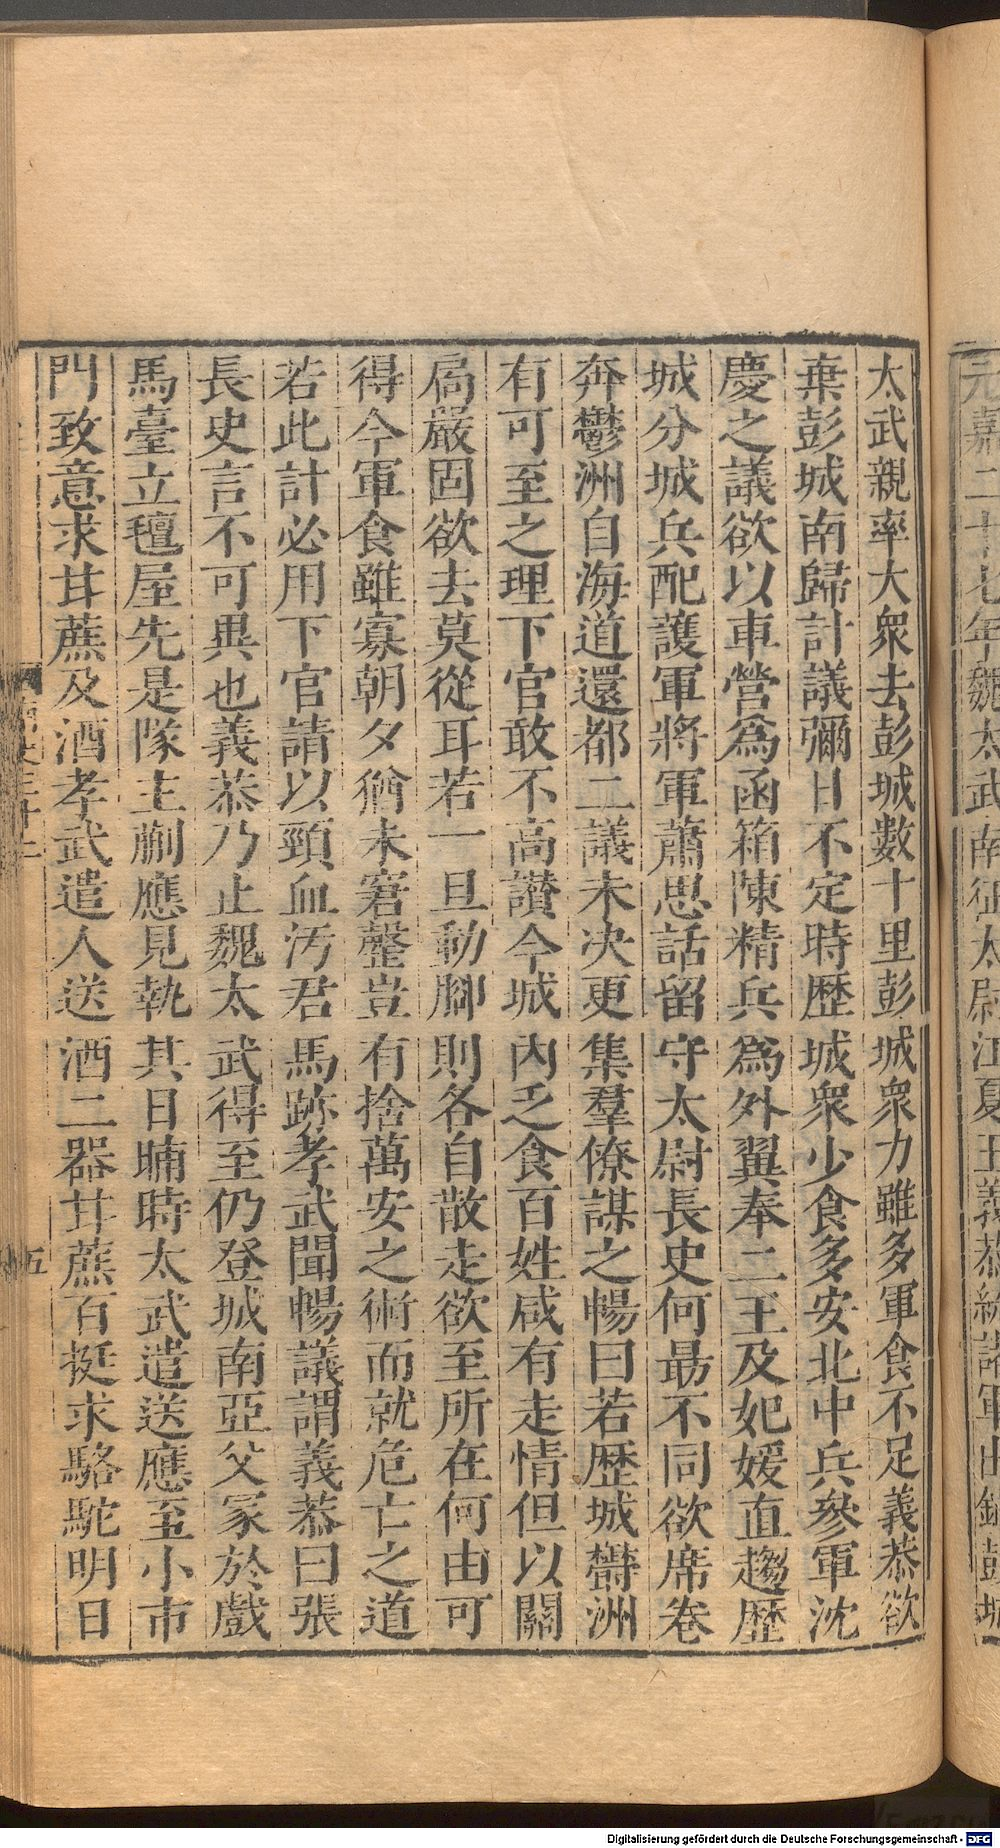 太武親率大衆去彭城數十里彭城衆力雖多軍食不足義恭欲
棄彭城南歸計議彌日不定時歷城衆少食多安北中兵參軍沈
慶之議欲以車營爲函箱陳精兵爲外翼奉二王及妃媛直趨歷
城分城兵配護軍將軍蕭思話留守太尉長史何勗不同欲席卷
奔鬱洲自海道還都二議未决更集羣僚謀之暢曰若歷城鬱洲
有可至之理下官敢不高讃今城内乏食百姓咸有走情但以關
扃嚴固欲去莫從耳若一旦動脚則各自散走欲至所在何由可
得今軍食雖寡朝夕猶未窘罄豈有捨萬安之術而就危亡之道
若此計必用下官請以頸血汚君馬跡孝武聞暢議謂義恭曰張
長史言不可異也義恭乃止魏太武得至仍登城南亞父冢於戲
馬臺立氊屋先是隊主蒯應見執其日晡時太武遣送應至小市
門致意求甘蔗及酒孝武遣人送酒二器甘蔗百挺求駱駝明日
五
元嘉二十七年魏太武南征太尉江夏王義恭統諸軍出鎮彭城
Digitalisierung gefördert durch die Deutsche Forschungsgemeinschaft - DFG